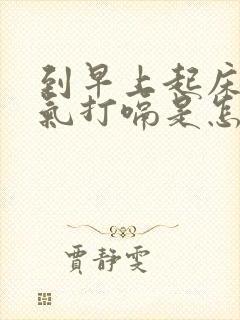 到早上起床
氣打嗝是怎
賈靜雯